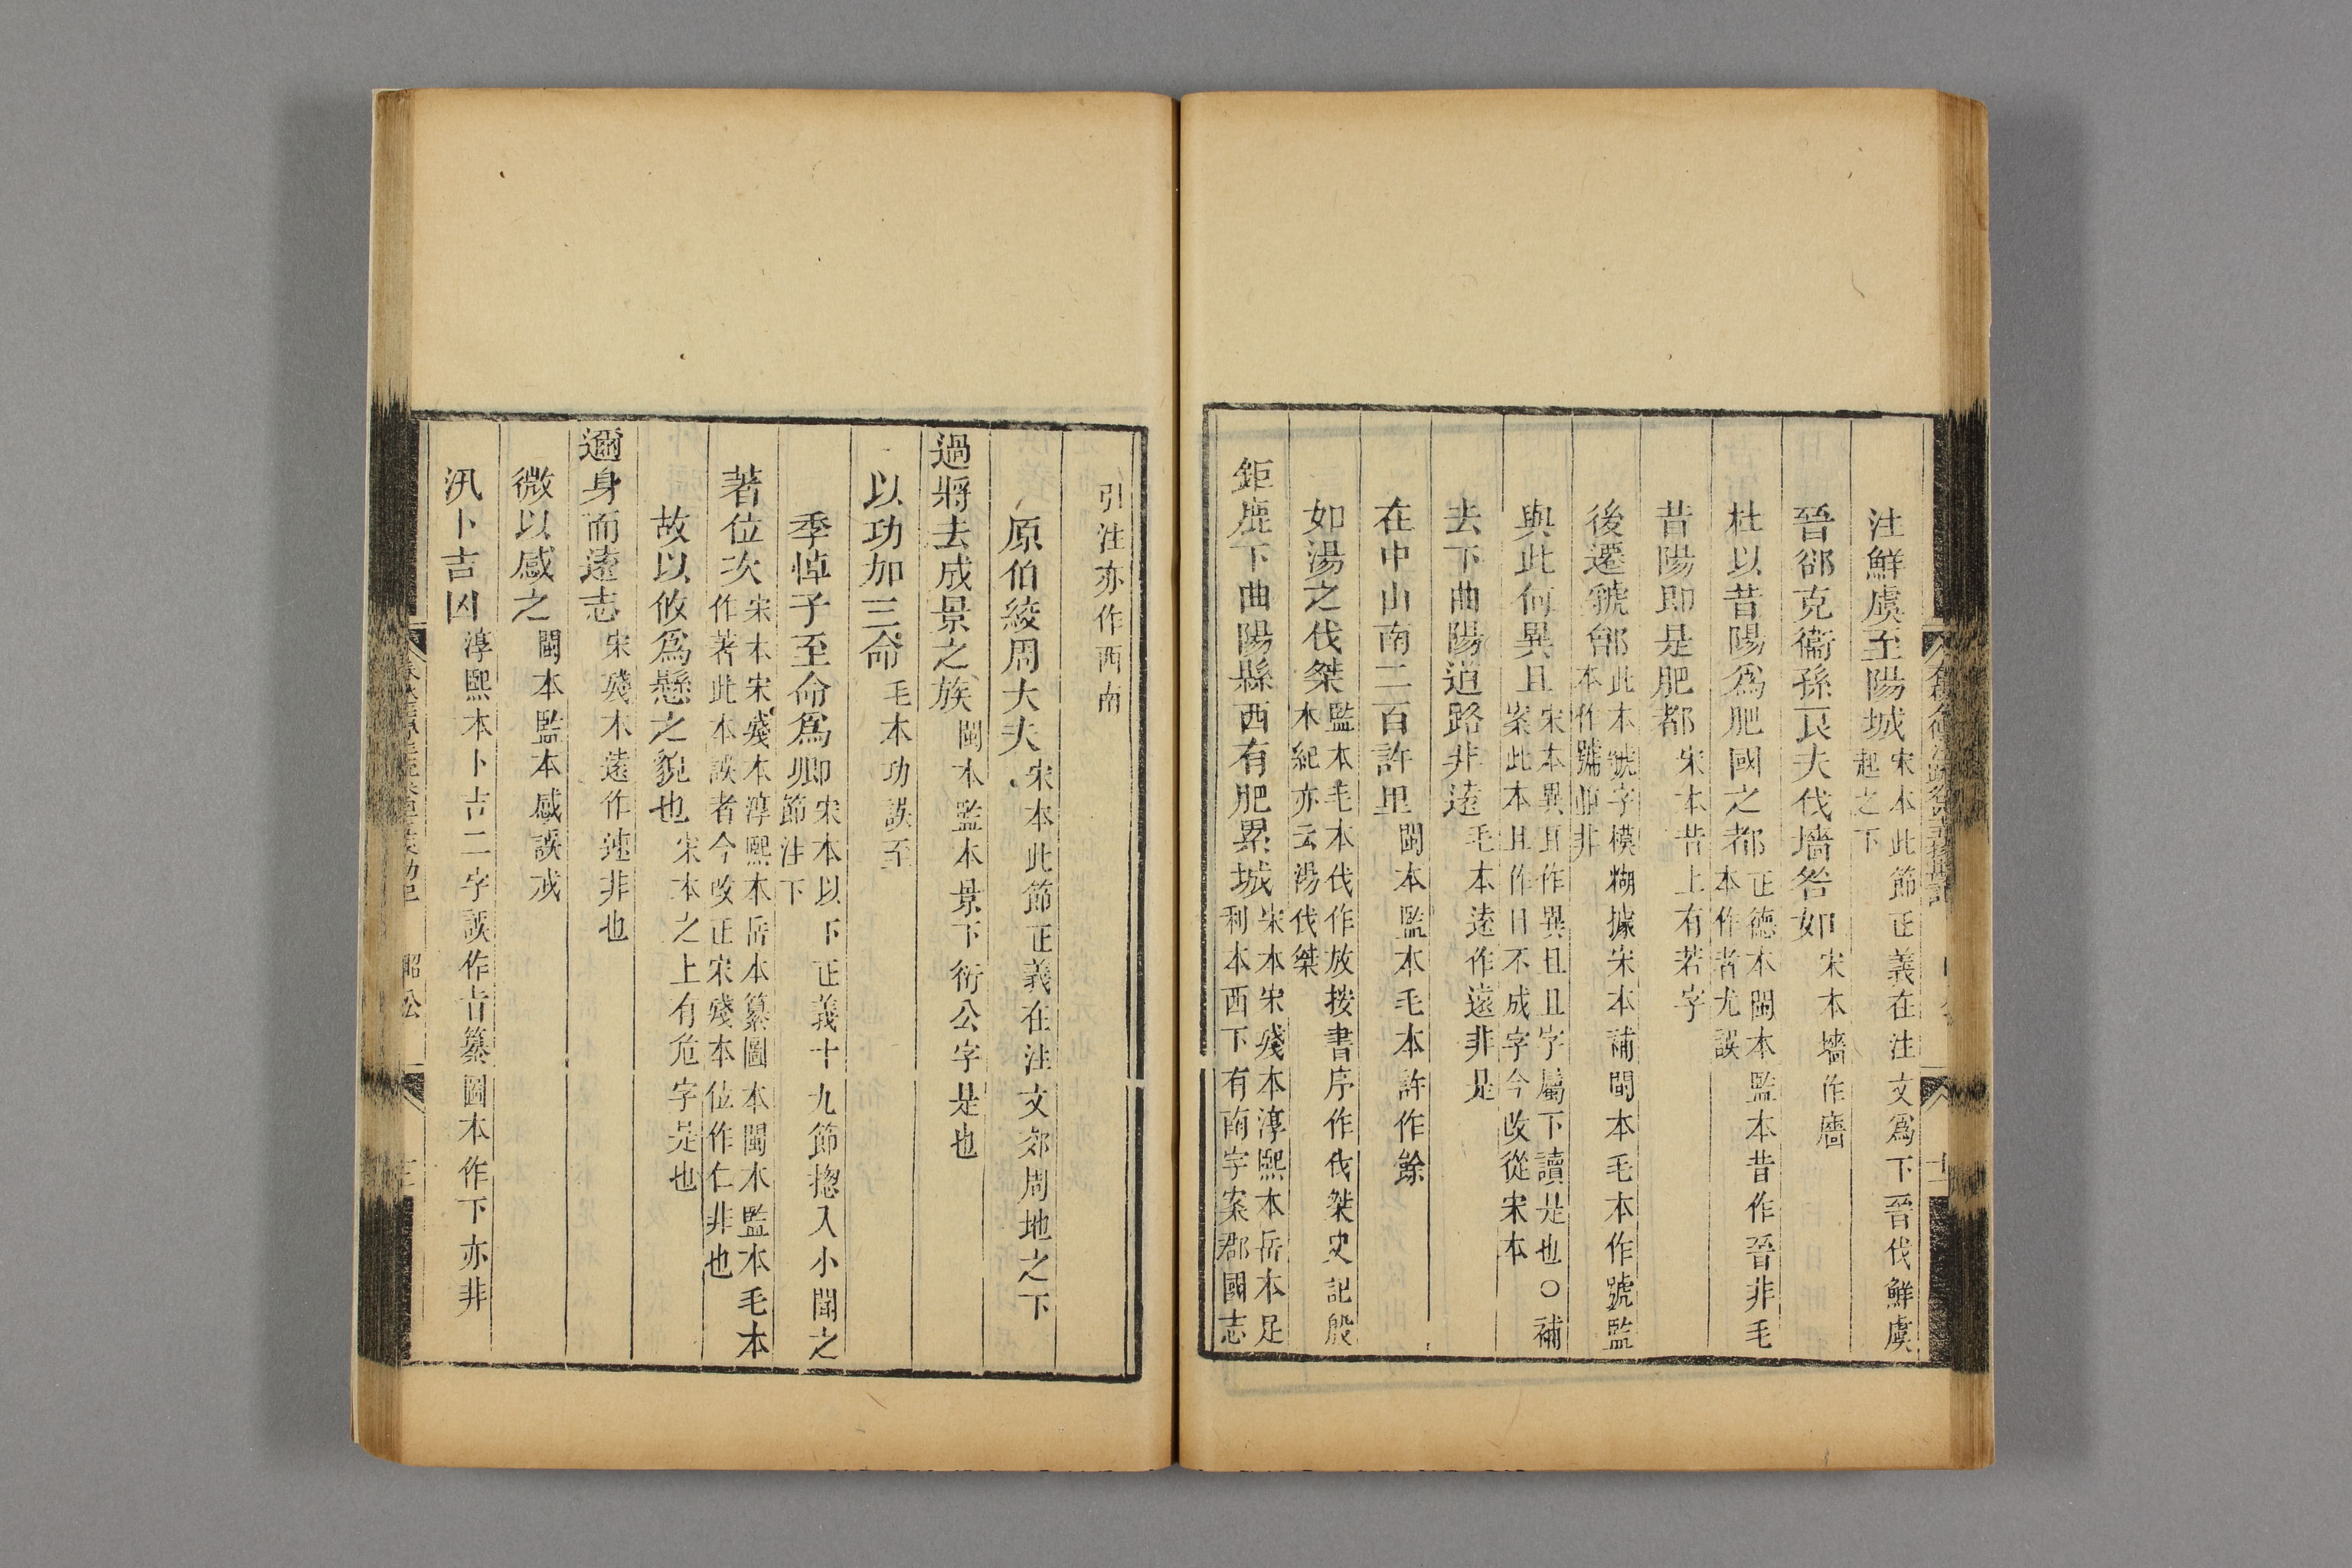 注鮮虞至陽城宋本此節正義在注文爲下晉伐鮮虞起之下
晉郤克衞孫良夫伐墻咎如宋本墻作廧
杜以昔陽爲肥國之都正德本閩本監本昔作晉非毛本作者尤誤
昔陽即是肥都宋本昔上有若字
後遷虢鄶此本虢字模糊據宋本補閩本毛本作號監本作號鄶非
與此何異且宋本異且作異且且字屬下讀是也○補案此本且作日不成字今改從宋本
去下曲陽道路非遠毛本遠作遠非是
在中山南二百許里閩本監本毛本許作餘
如湯之伐桀監本毛本伐作放按書序作伐桀史記殷本紀亦云湯伐桀
鉅鹿下曲陽縣西有肥累城宋本宋殘本淳熙本岳本足利本西下有南字案郡國志
引注亦作西南
原伯綾周大夫宋本此節正義在注文郊周地之下
過將去成景之族閩本監本景下衍公字是也
以功加三命毛本功誤至
季悼子至命爲卿宋本以下正義十九節揔入小聞之節注下
著位次宋本宋殘本淳熙本岳本纂圖本閩本監本毛本作著此本誤者今改正宋殘本位作仁非也
故以攸爲懸之貌也宋本之上有危字是也
邇身而遠志宋殘本遠作速非也
微以感之閩本監本感誤戒
汎卜吉凶淳熙本卜吉二字誤作吉纂圖本作下亦非